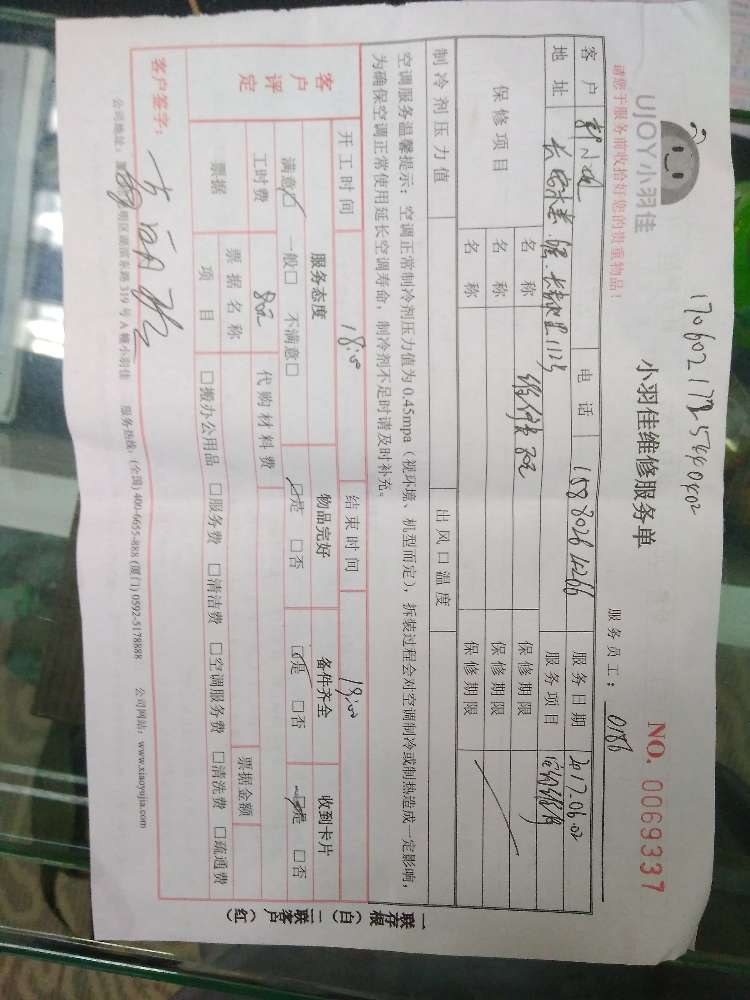 1706021725440402
UJOY小羽佳
小羽佳维修服务单
NO. 0069337
请您于服务前收拾好您的贵重物品！
服务员工： 0186
客户 电话 15880261266 服务日期 2017.06.02
地址 服务项目
保修项目 名称 保修期限
名称 保修期限
名称 保修期限
制冷剂压力值 出风口温度
空调服务温馨提示：空调正常制冷剂压力值为0.45mpa（视环境、机型而定），拆装过程会对空调制冷或制热造成一定影响，
为确保空调正常使用延长空调寿命，制冷剂不足时请及时补充。
开工时间 18:00 结束时间 19:00
客户评定 服务态度 物品完好 备件齐全 收到卡片
满意☑ 一般□ 不满意□ ☑是 □否 ☑是 □否 ☑是 □否
工时费 80元 代购材料费
票据 票据名称 票据金额
项目 □搬办公用品 □服务费 □清洁费 □空调服务费 □清洗费 □疏通费
客户签字：
公司地址： 明区湖滨东路319号A幢小羽佳 服务热线：(全国) 400-6655-888 (厦门) 0592-5178888 公司网站：www.xiaoyujia.com
一联存根（白） 二联客户（红）